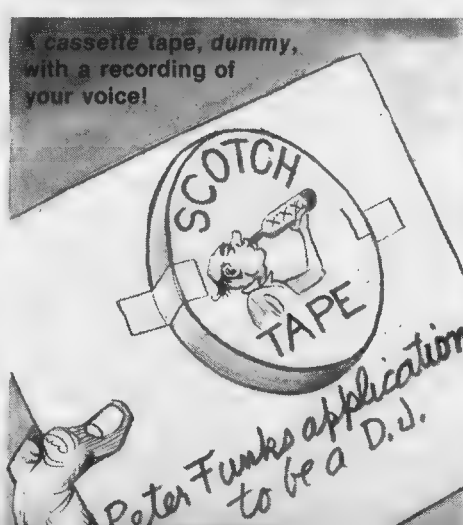 A cassette tape, dummy,
with a recording of
your voice!
SCOTCH
XXX
TAPE
Peter Funks application
to be a D.J.